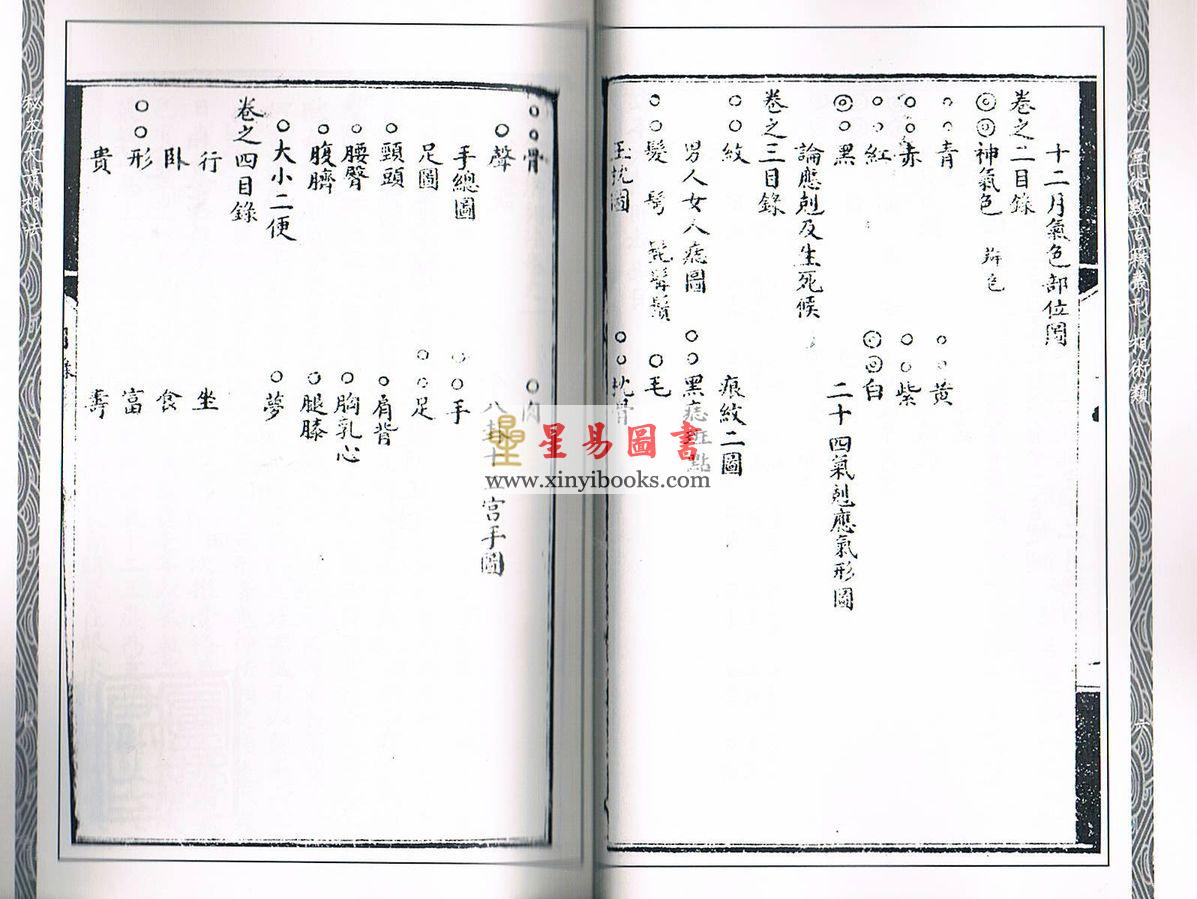 心一堂術數古籍叢刊 相術類
六
十二月氣色部位圖
卷之二目錄
◎◎神氣色 辨色
○○青 ○○黃
○○赤 ○○紫
○○紅 ◎◎白
◎○黑 二十四氣剋應氣形圖
論應剋及生死候
卷之三目錄
○○紋 痕紋二圖
男人女人痣圖 ○○黑痣斑點
○○髮 髩 髭髯鬚 ○毛
玉枕圖 ○○枕骨
○○○骨 ○肉
○聲 八卦十二宮手圖
手總圖 ○○手
足圖 ○○足
○頸項 ○肩背
○腰臀 ○胸乳心
○腹臍 ○腿膝
○大小二便 ○夢
卷之四目錄
行 坐
臥 食
○○形 富
貴 壽
目錄
星易圖書
www.xinyibooks.com